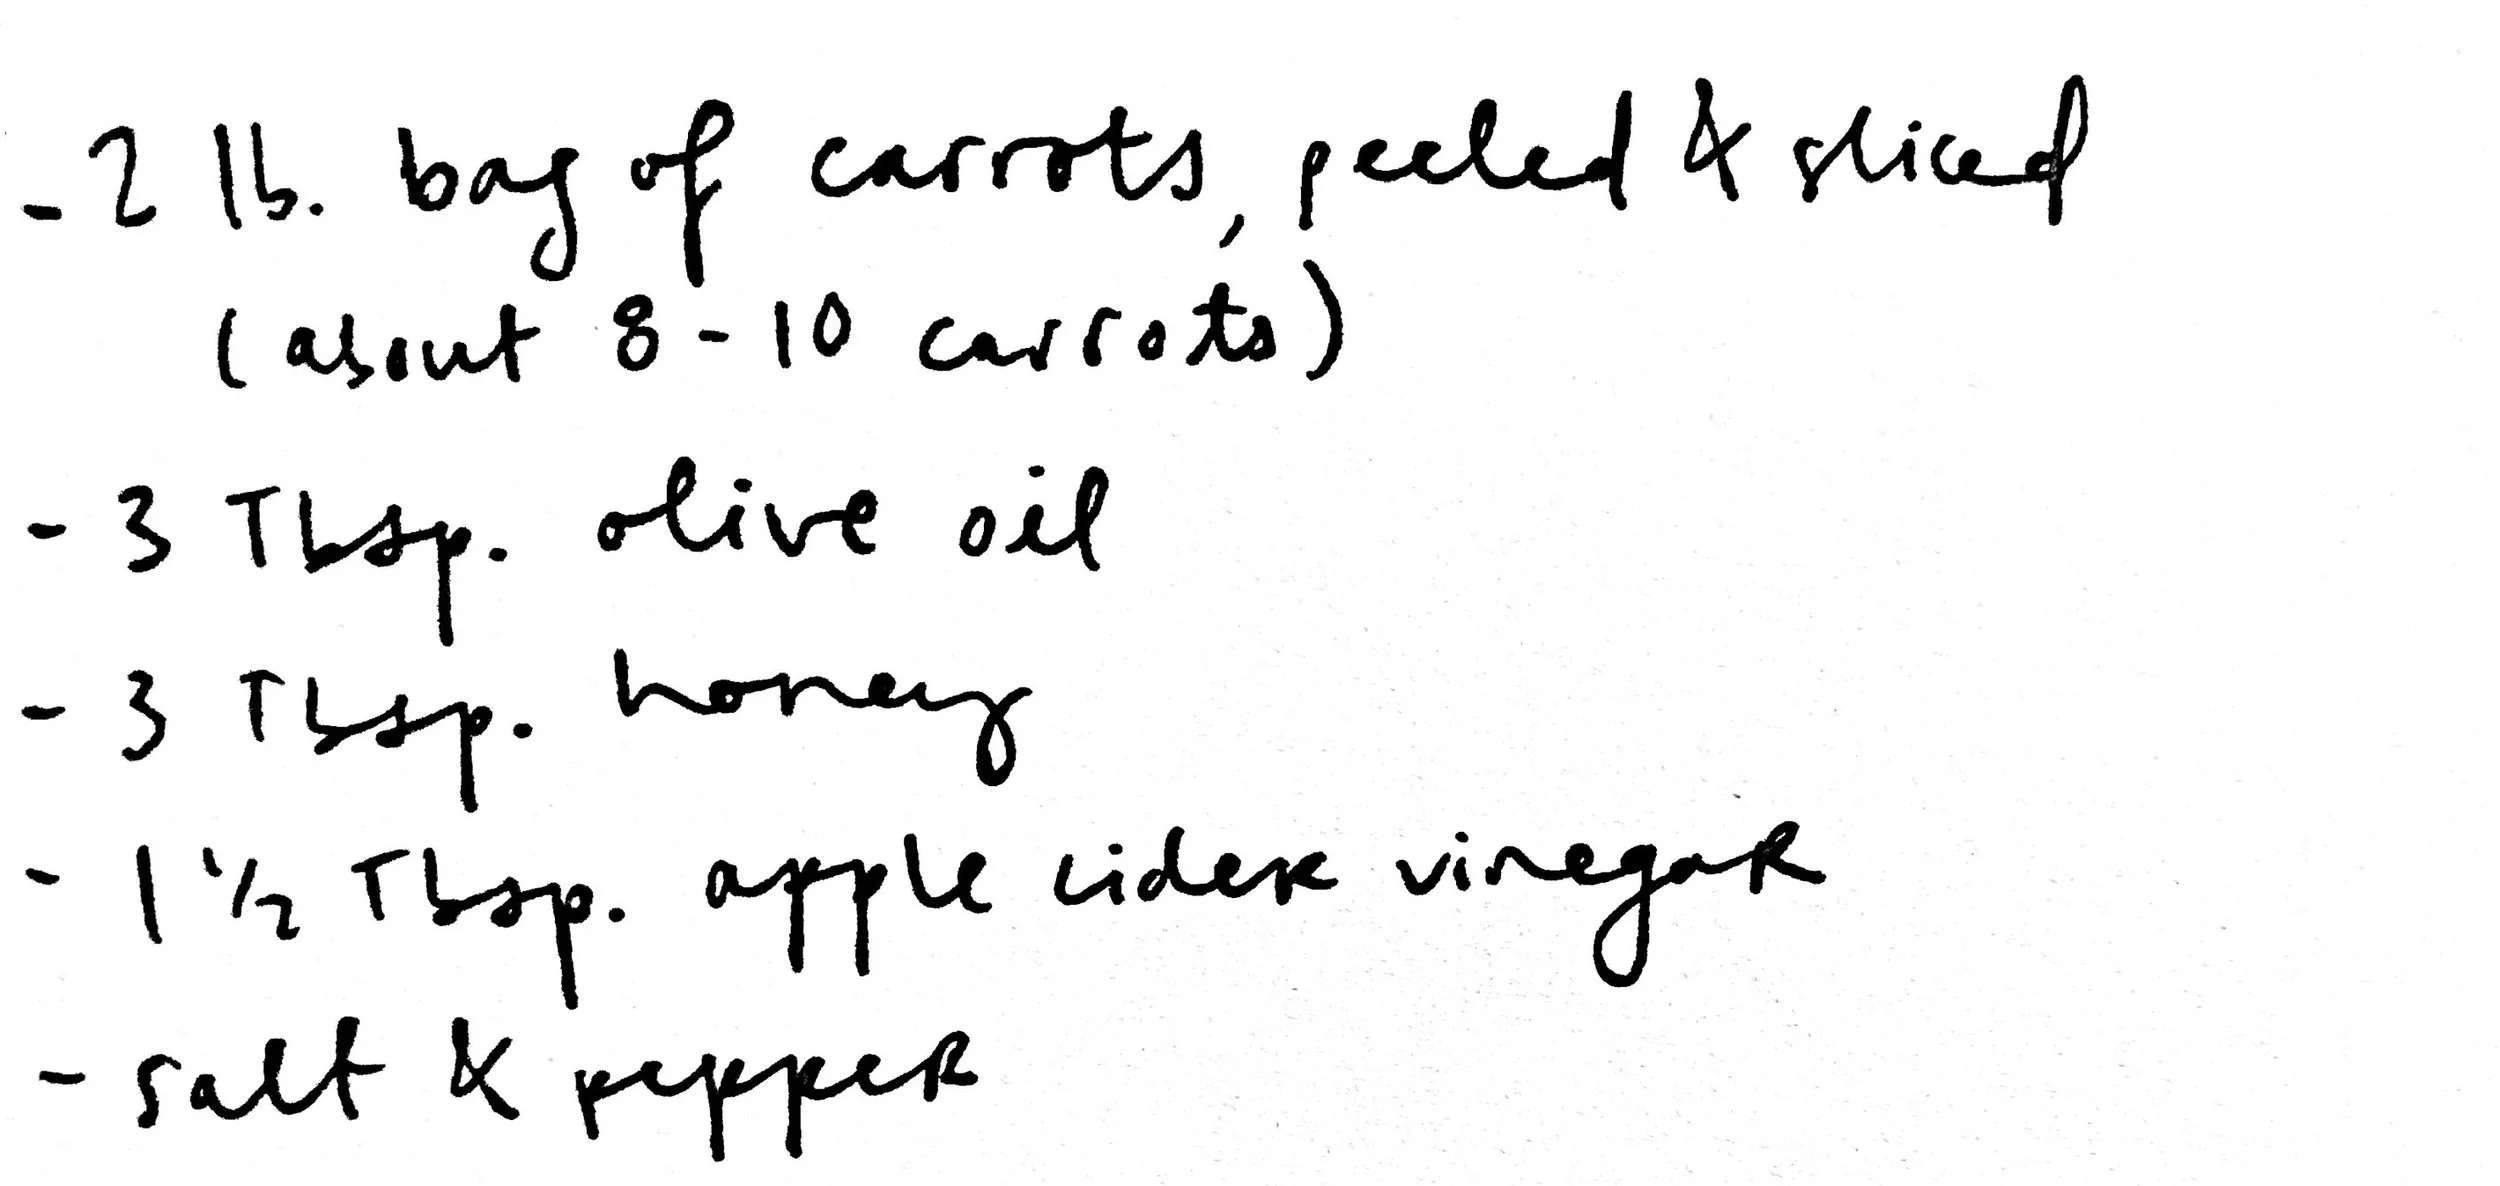 - 2 lb. bag of carrots, peeled & sliced
(about 8-10 carrots)
- 3 Tbsp. olive oil
- 3 Tbsp. honey
- 1 1/2 Tbsp. apple cider vinegar
- salt & pepper